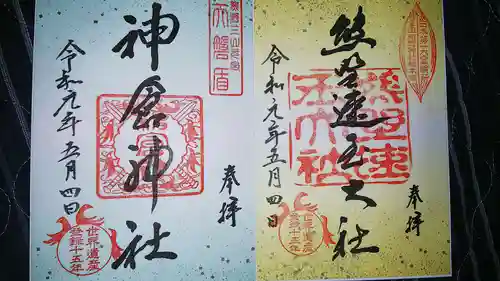 奉拝
熊野速玉大社
令和元年五月四日
世界遺産
登録十五年
奉拝
神倉神社
令和元年五月四日
世界遺産
登録十五年